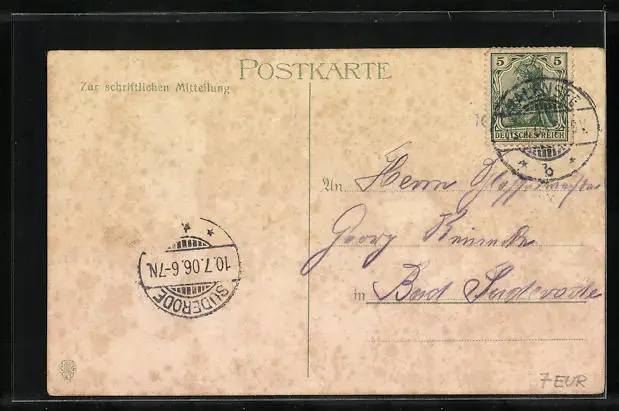 POSTKARTE
Zur schriftlichen Mitteilung
5 5
DEUTSCHES REICH
* b *
An Herrn
Georg Reinecke
in Bad Suderode
10.7.06.6-7N.
SUDERODE
7 EUR